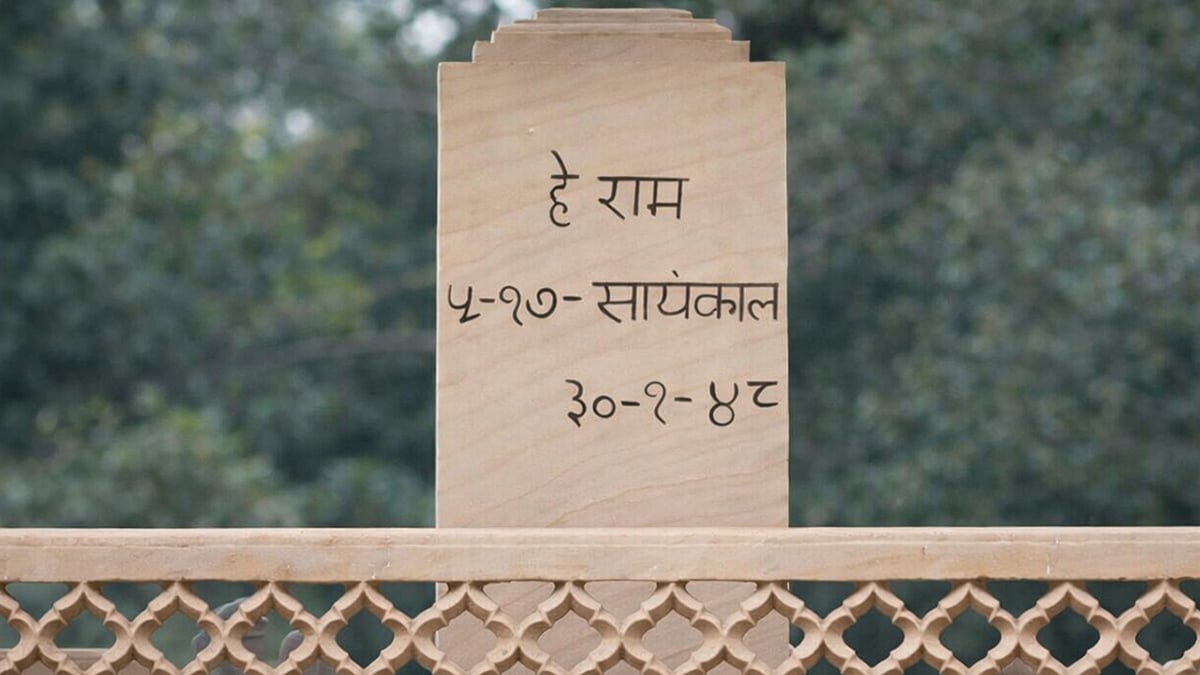 हे राम
५-१७- सायंकाल
३०-१- ४८